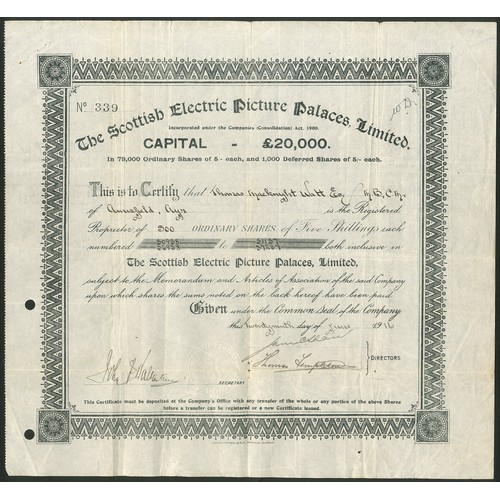 Nº 339
The Scottish Electric Picture Palaces, Limited.
Incorporated under the Companies (Consolidation) Act, 1908.
CAPITAL - £20,000.
In 79,000 Ordinary Shares of 5/- each, and 1,000 Deferred Shares of 5/- each.
This is to Certify that Thomas Macknight Watt Esq
of Ayr is the Registered
Proprietor of 500 ORDINARY SHARES of Five Shillings each
numbered to both inclusive in
The Scottish Electric Picture Palaces, Limited,
subject to the Memorandum and Articles of Association of the said Company
upon which shares the sums noted on the back hereof have been paid
Given under the Common Seal of the Company
this twentyninth day of June 1916
Thomas
DIRECTORS
SECRETARY
This Certificate must be deposited at the Company's Office with any transfer of the whole or any portion of the above Shares
before a transfer can be registered or a new Certificate issued.